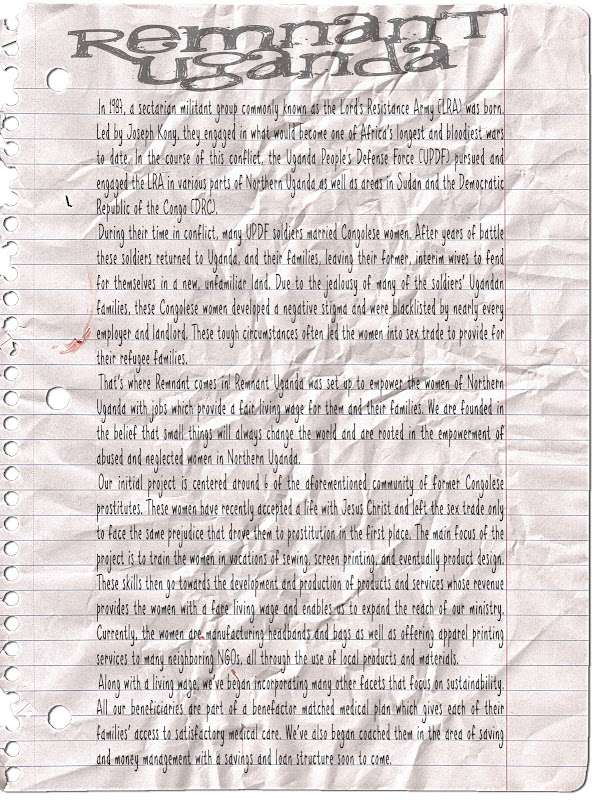 Remnant
Uganda
In 1987, a sectarian militant group commonly known as the Lord's Resistance Army (LRA) was born.
Led by Joseph Kony, they engaged in what would become one of Africa's longest and bloodiest wars
to date. In the course of this conflict, the Uganda People's Defense Force (UPDF) pursued and
engaged the LRA in various parts of Northern Uganda as well as areas in Sudan and the Democratic
Republic of the Congo (DRC).
During their time in conflict, many UPDF soldiers married Congolese women. After years of battle
these soldiers returned to Uganda, and their families, leaving their former, interim wives to fend
for themselves in a new, unfamiliar land. Due to the jealousy of many of the soldiers' Ugandan
families, these Congolese women developed a negative stigma and were blacklisted by nearly every
employer and landlord. These tough circumstances often led the women into sex trade to provide for
their refugee families.
That's where Remnant comes in! Remnant Uganda was set up to empower the women of Northern
Uganda with jobs which provide a fair living wage for them and their families. We are founded in
the belief that small things will always change the world and are rooted in the empowerment of
abused and neglected women in Northern Uganda.
Our initial project is centered around 6 of the aforementioned community of former Congolese
prostitutes. These women have recently accepted a life with Jesus Christ and left the sex trade only
to face the same prejudice that drove them to prostitution in the first place. The main focus of the
project is to train the women in vocations of sewing, screen printing, and eventually product design.
These skills then go towards the development and production of products and services whose revenue
provides the women with a fare living wage and enables us to expand the reach of our ministry.
Currently, the women are manufacturing headbands and bags as well as offering apparel printing
services to many neighboring NGOs, all through the use of local products and materials.
Along with a living wage, we've began incorporating many other facets that focus on sustainability.
All our beneficiaries are part of a benefactor matched medical plan which gives each of their
families' access to satisfactory medical care. We've also began coached them in the area of saving
and money management with a savings and loan structure soon to come.